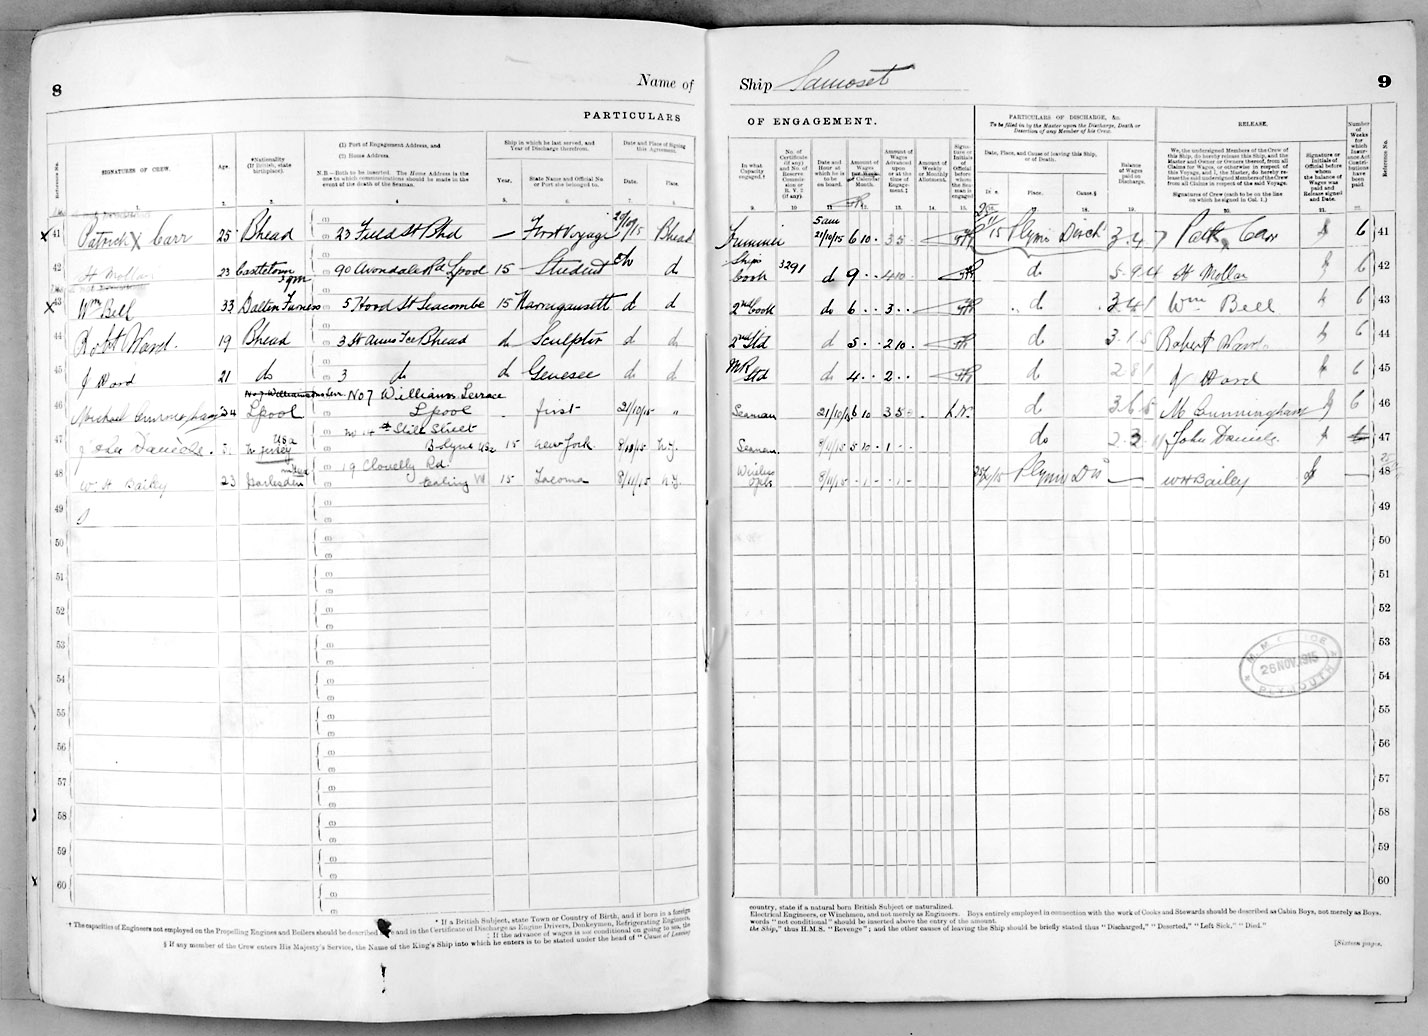 8
Name of
PARTICULARS
Reference No.
SIGNATURES OF CREW.
Age.
*Nationality
(If British, state
birthplace).
(1) Port of Engagement Address, and
(2) Home Address.
N.B.—Both to be inserted. The Home Address is the
one to which communications should be made in the
event of the death of the Seaman.
Ship in which he last served, and
Year of Discharge therefrom.
Year.
State Name and Official No.
or Port she belonged to.
Date and Place of Signing
this Agreement.
Date.
Place.
1. 2. 3. 4. 5. 6. 7. 8.
x 41 Patrick X Carr 25 Bhead 23 Field St Bhd — First Voyage 20/10/15 Bhead
42 H Mollar 23 Castletown IOM 90 Avondale Rd Lpool 15 Student do
x 43 Wm Bell 33 Dalton Furness 5 Hood St Seacombe 15 Narragansett do do
44 Robt Ward. 19 Bhead 3 St Anns Tce Bhead do Sculptor do do
45 J Ward 21 do 3 do do Genesee do do
No 7 Williams Terrace
46 Michael Cunningham 34 Lpool Lpool - first 21/10/15 "
47 John Daniels. USA N Jersey Street Bklyn USA 15 New York 8/11/15 N.Y.
19 Clovelly Rd.
48 W H Bailey 23 Harlesden Ealing W 15 Tacoma 8/11/15 N.Y.
49
50
51
52
53
54
55
56
57
58
59
60
* If a British Subject, state Town or Country of Birth, and if born in a foreign
† The capacities of Engineers not employed on the Propelling Engines and Boilers should be described
and in the Certificate of Discharge as Engine Drivers, Donkeymen, Refrigerating Engineers,
‡ If the advance of wages is not conditional on going to sea, the
§ If any member of the Crew enters His Majesty's Service, the Name of the King's Ship into which he enters is to be stated under the head of "Cause of Leaving
Ship Samoset
9
OF ENGAGEMENT.
In what
Capacity
engaged.†
No. of
Certificate
(if any)
and No. of
Reserve
Commission
or R. V. 2
(if any)
Date and
Hour at
which he
is to be
on board.
Amount of
Wages
per Week
or Calendar
Month.
Amount of
Wages
Advanced
upon or at
the time of
Engagement.‡
Amount of
Weekly
or Monthly
Allotment.
Signature
or
Initials of
Official
before
whom
the
Seaman
is
engaged
PARTICULARS OF DISCHARGE, &c.
To be filled in by the Master upon the Discharge, Death or
Desertion of any Member of his Crew.
Date, Place, and Cause of leaving this Ship,
or of Death.
Date.
Place.
Cause.§
Balance
of Wages
paid on
Discharge.
RELEASE.
We, the undersigned Members of the Crew of
this Ship, do hereby release this Ship, and the
Master and Owner or Owners thereof, from all
Claims for Wages, or otherwise in respect of
this Voyage, and I, the Master, do hereby release
the undersigned Members of the Crew,
from all Claims in respect of the said Voyage.
Signatures of Crew (each to be on the line
on which he signed in Col. 1.)
Signature or
Initials of
Official before
whom
the balance of
Wages was
paid and
Release signed
and Date.
Number
of
Weeks
for
which
Insurance Act
Contributions
have
been
paid
Reference No.
9. 10 11 12. 13. 14. 15. 16. 17. 18. 19. 20. 21. 22.
Trimmer 5am 21/10/15 6 10 . 3 5 - 15 Plym Disch 3.4.7 Patk X Carr 6 41
Ships Cook 3291 do 9 . . 4 10 . do 5.9.4 H Mollar 6 42
2nd Cook do 6 . . 3 . . do 3.4.1 Wm Bell 6 43
2nd Std do 5 . . 2 10 . do 3.1.5 Robert Ward 6 44
MR Std do 4 . . 2 . . do 2 8 1 J Ward 6 45
Seaman 21/10/15 6 10 3 5 - do 3.6.5 M Cunningham 6 46
Seaman. 8/11/15 5 10 . 1 . . do John Daniels 47
Wireless Opr 8/11/15 . 1 . . 1 . Plym Dis — W H Bailey — 48
49
50
51
52
53
M.M. OFFICE
26 NOV. 1915
PLYMOUTH
54
55
56
57
58
59
60
country, state if a natural born British Subject or naturalized.
Electrical Engineers, or Winchmen, and not merely as Engineers. Boys entirely employed in connection with the work of Cooks and Stewards should be described as Cabin Boys, not merely as Boys.
words "not conditional" should be inserted above the entry of the amount.
the Ship," thus H.M.S. "Revenge"; and the other causes of leaving the Ship should be briefly stated thus "Discharged," "Deserted," "Left Sick," "Died."
[Sixteen pages.